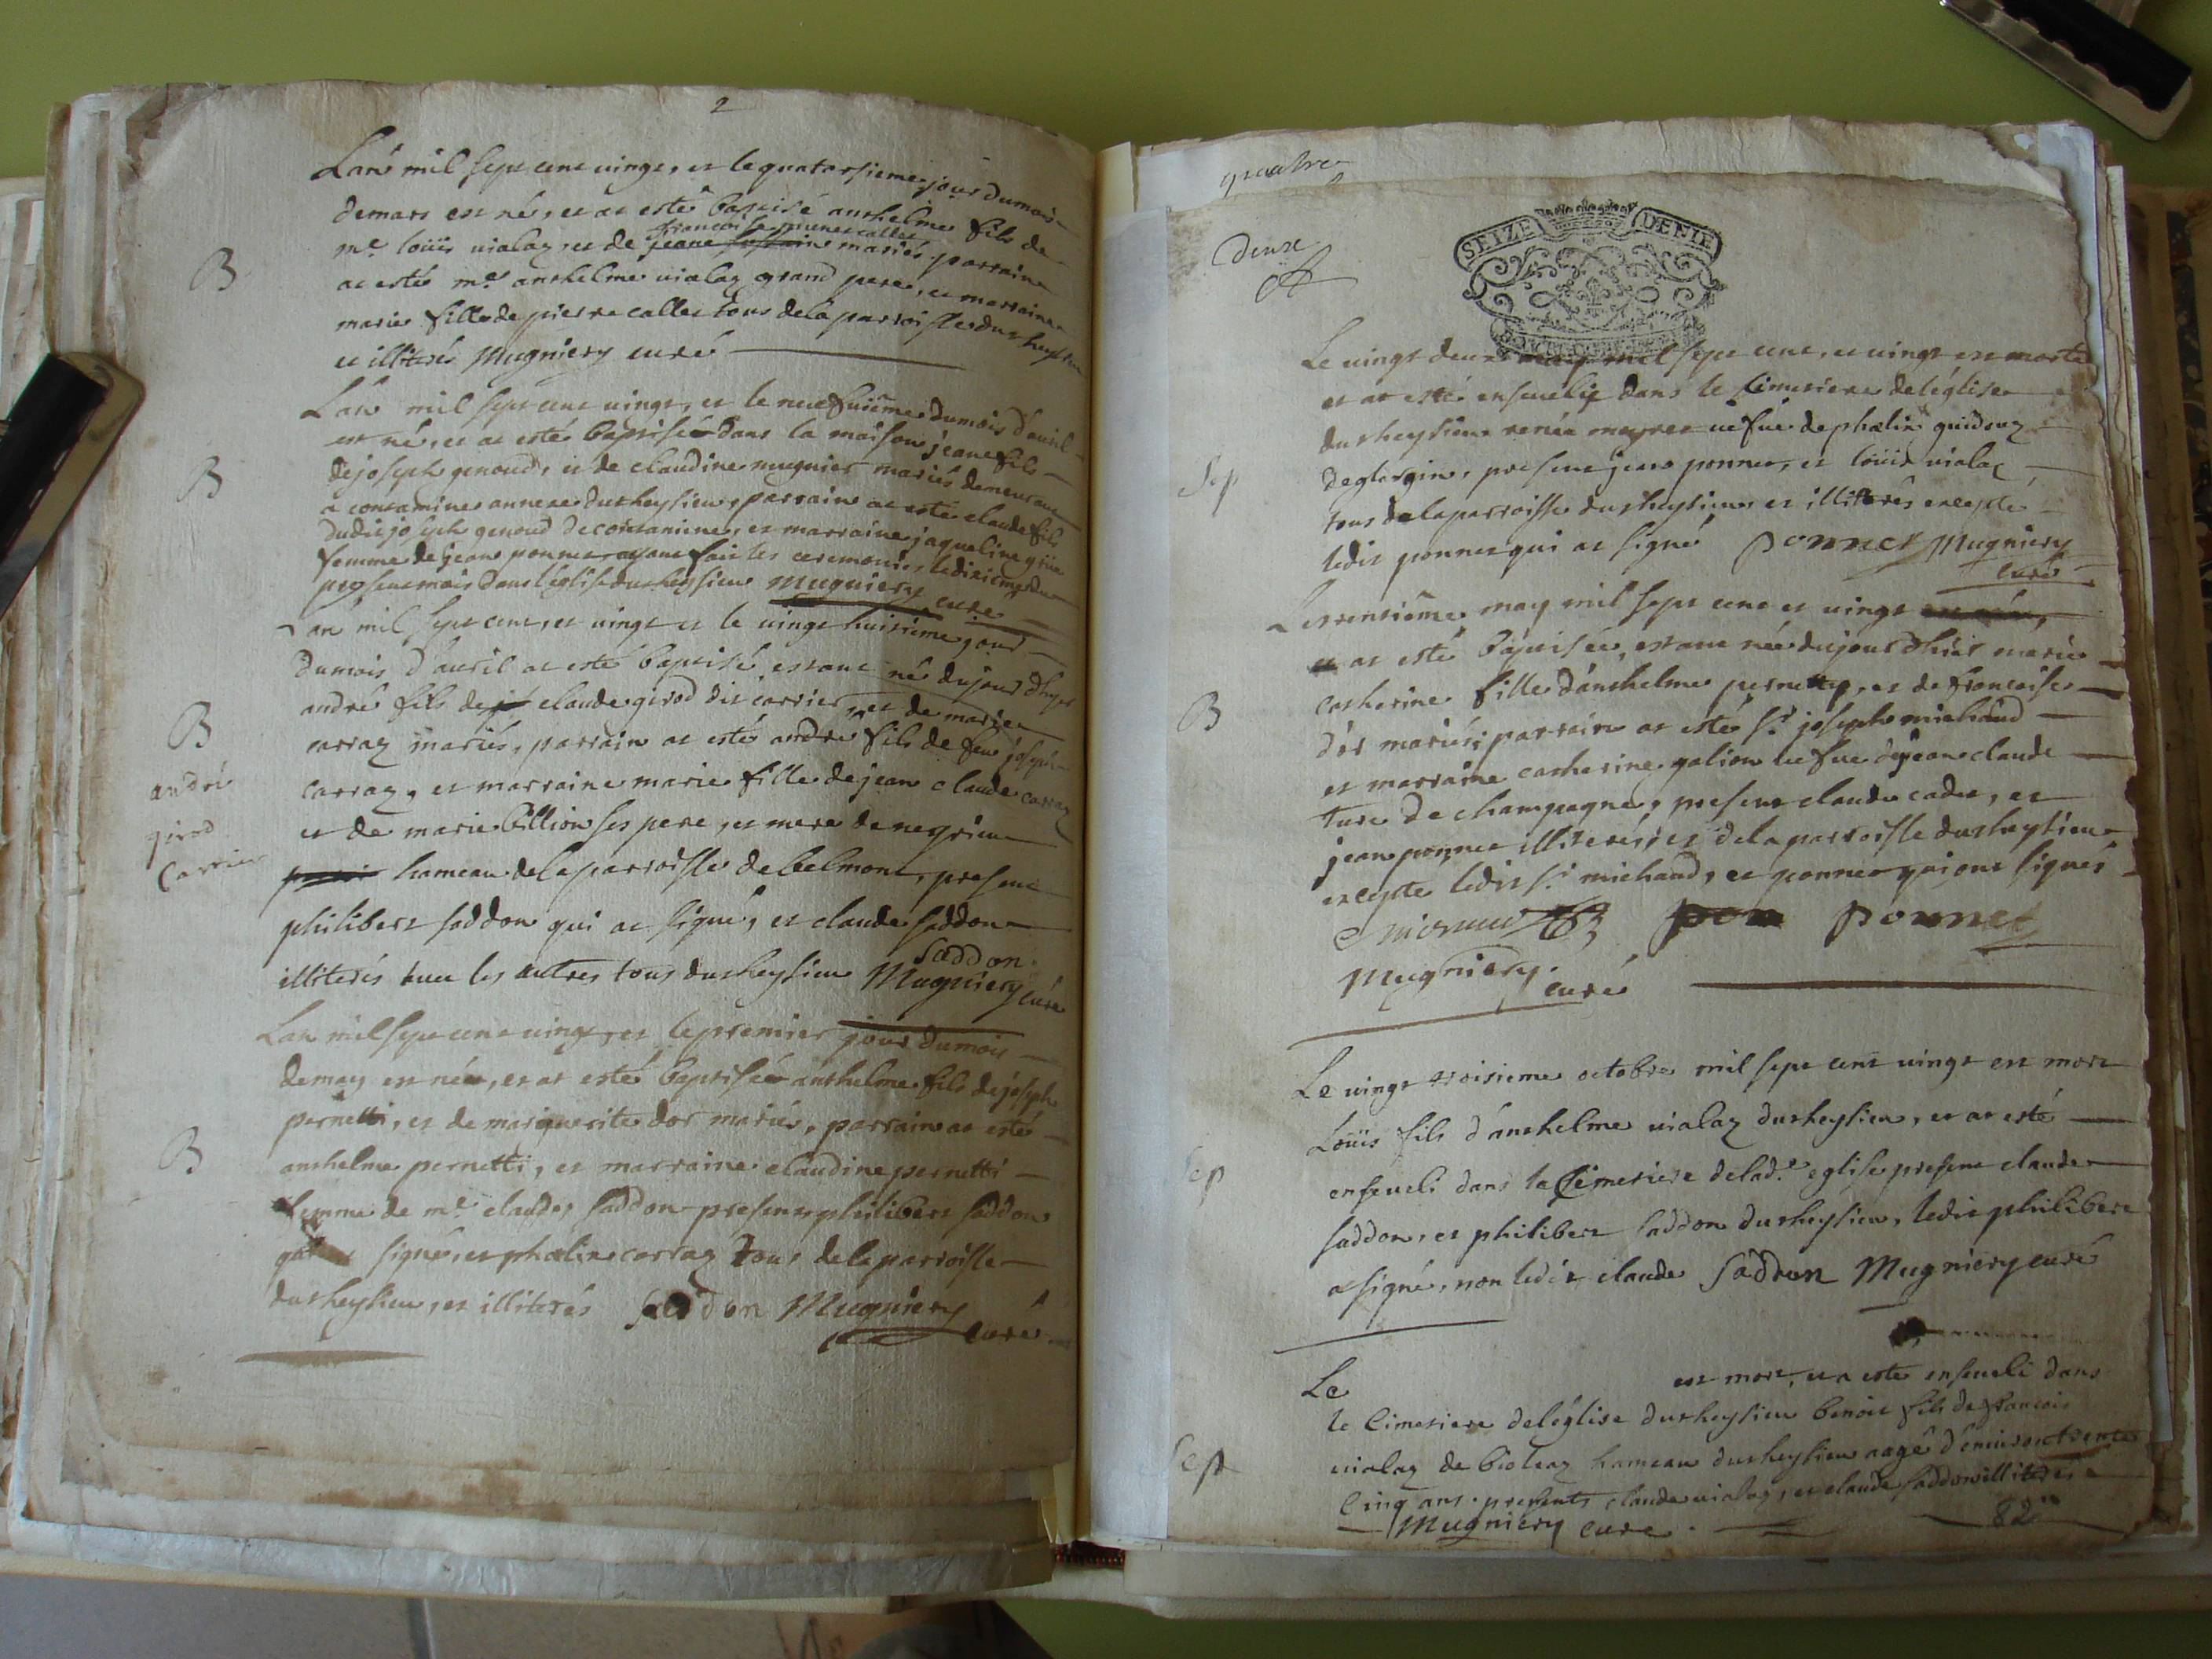 2
Lan mil sept cent vingt, et le quatorsieme jour du mois
de mars est né, et at esté baptisé anthelme fils de
francoise
me louis vialaz, et de mariés. parrain
at esté me anthelme vialaz grand pere, et marraine
B
marie fille de pierre calles tous de la parroisse dutheysieu
et illiterés Mugniery curé
Lan mil sept cent vingt, et le neufuième du mois d'avril
est né, et at esté baptisé dans la maison jeane fils
B
de joseph genoud, et de claudine mugnier mariés demeurant
a contamine annexe dutheysieu, parrain at esté claude fils
dudit joseph genoud de contamine, et marraine jaqueline
femme de jean ponnet ayant fait les ceremonies
present mois dans l'eglise dutheysieu Mugniery curé
an mil sept cent, et vingt et le vingt huitième jour
du mois d'avril at esté baptisé estant né du jour d'hyer
andré fils de claude girod dit carrier, et de marie
B
carraz mariés, parrain at esté andré fils de feu joseph
andré
carraz, et marraine marie fille de jean claude carraz
girod
et de marie billion ses pere, et mere de negrieu
Carrier
hameau de la parroisse de belmont, present
philibert saddon qui at signé, et claude saddon
saddon
illiterés avec les autres tous dutheysieu Mugniery curé
Lan mil sept cent vingt, et le premier jour du mois
de may est né, et at esté baptisé anthelme fils de joseph
pernetti, et de marguerite dor mariés, parrain at esté
B
anthelme pernetti, et marraine claudine pernetti
femme de me claude saddon present philibert saddon
qui signé, et phælin carraz tous de la parroisse
dutheysieu, et illiterés Saddon Mugniery
curé
quatre
Deux
SEIZE DENIE
Le vingt deux may mil sept cent, et vingt est morte
et at esté ensevelie dans le cimetiere de léglise
dutheysieu renée vefue de phælin
Sep
present jean ponnet, et louis vialaz
tous de la parroisse dutheysieu et illiterés excepté
ledit ponnet qui at signé Ponnet Mugniery
curé
Le trensième may mil sept cent et vingt
at esté baptisée, estant née du jour d'hier marie
catherine fille d'anthelme pernetty, et de francoise
B
d'or mariés; parrain at esté sr joseph michaud
et marraine catherine galion vefue de jean claude
ture de champagne, present claude cadet, et
jean ponnet illiterés, et de la parroisse dutheysieu
excepté ledit sr michaud, et ponnet qui ont signés
Ponnet
Mugniery.
curé
Le vingt troisieme octobre mil sept cent vingt est mort
Louis fils d'anthelme vialaz dutheysieu, et at esté
Sep
enseveli dans le Cimetiere de lade eglise present claude
saddon, et philibert saddon dutheysieu, ledit philibert
a signé, non ledit claude Saddon Mugniery curé
Le est mort, et a esté enseveli dans
le Cimetiere de léglise dutheysieu benoit fils de francois
vialaz de bioleaz hameau dutheysieu aagé d'environ trente
Sep
Cinq ans. presents claude vialaz, et claude saddon illiterés
Mugniery curé.
82